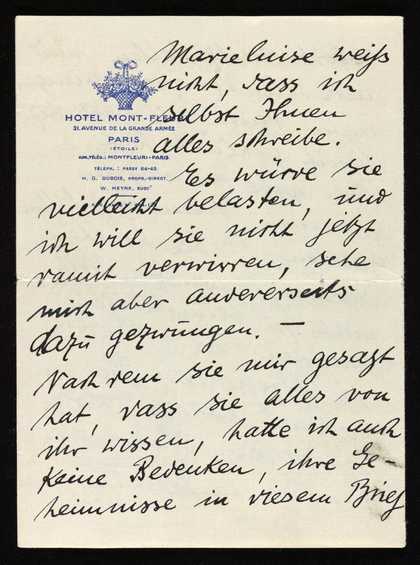 HOTEL MONT-FLEURI
21, AVENUE DE LA GRANDE ARMÉE
PARIS
(ÉTOILE)
ADR. TÉLÉG.: MONTFLEURI-PARIS
TÉLÉPH.: PASSY 64-45
H. G. DUBOIS, PROPR.-DIRECT.
W. MEYRE, SUDT
Marieluise weiss
nicht, dass ich
selbst Ihnen
alles schreibe.
Es würde sie
vielleicht belasten, und
ich will sie nicht jetzt
damit verwirren, sehe
mich aber andererseits
dazu gezwungen. —
Nachdem sie mir gesagt
hat, dass sie alles von
ihr wissen, hatte ich auch
keine Bedenken, ihre Ge-
heimnisse in diesem Brief